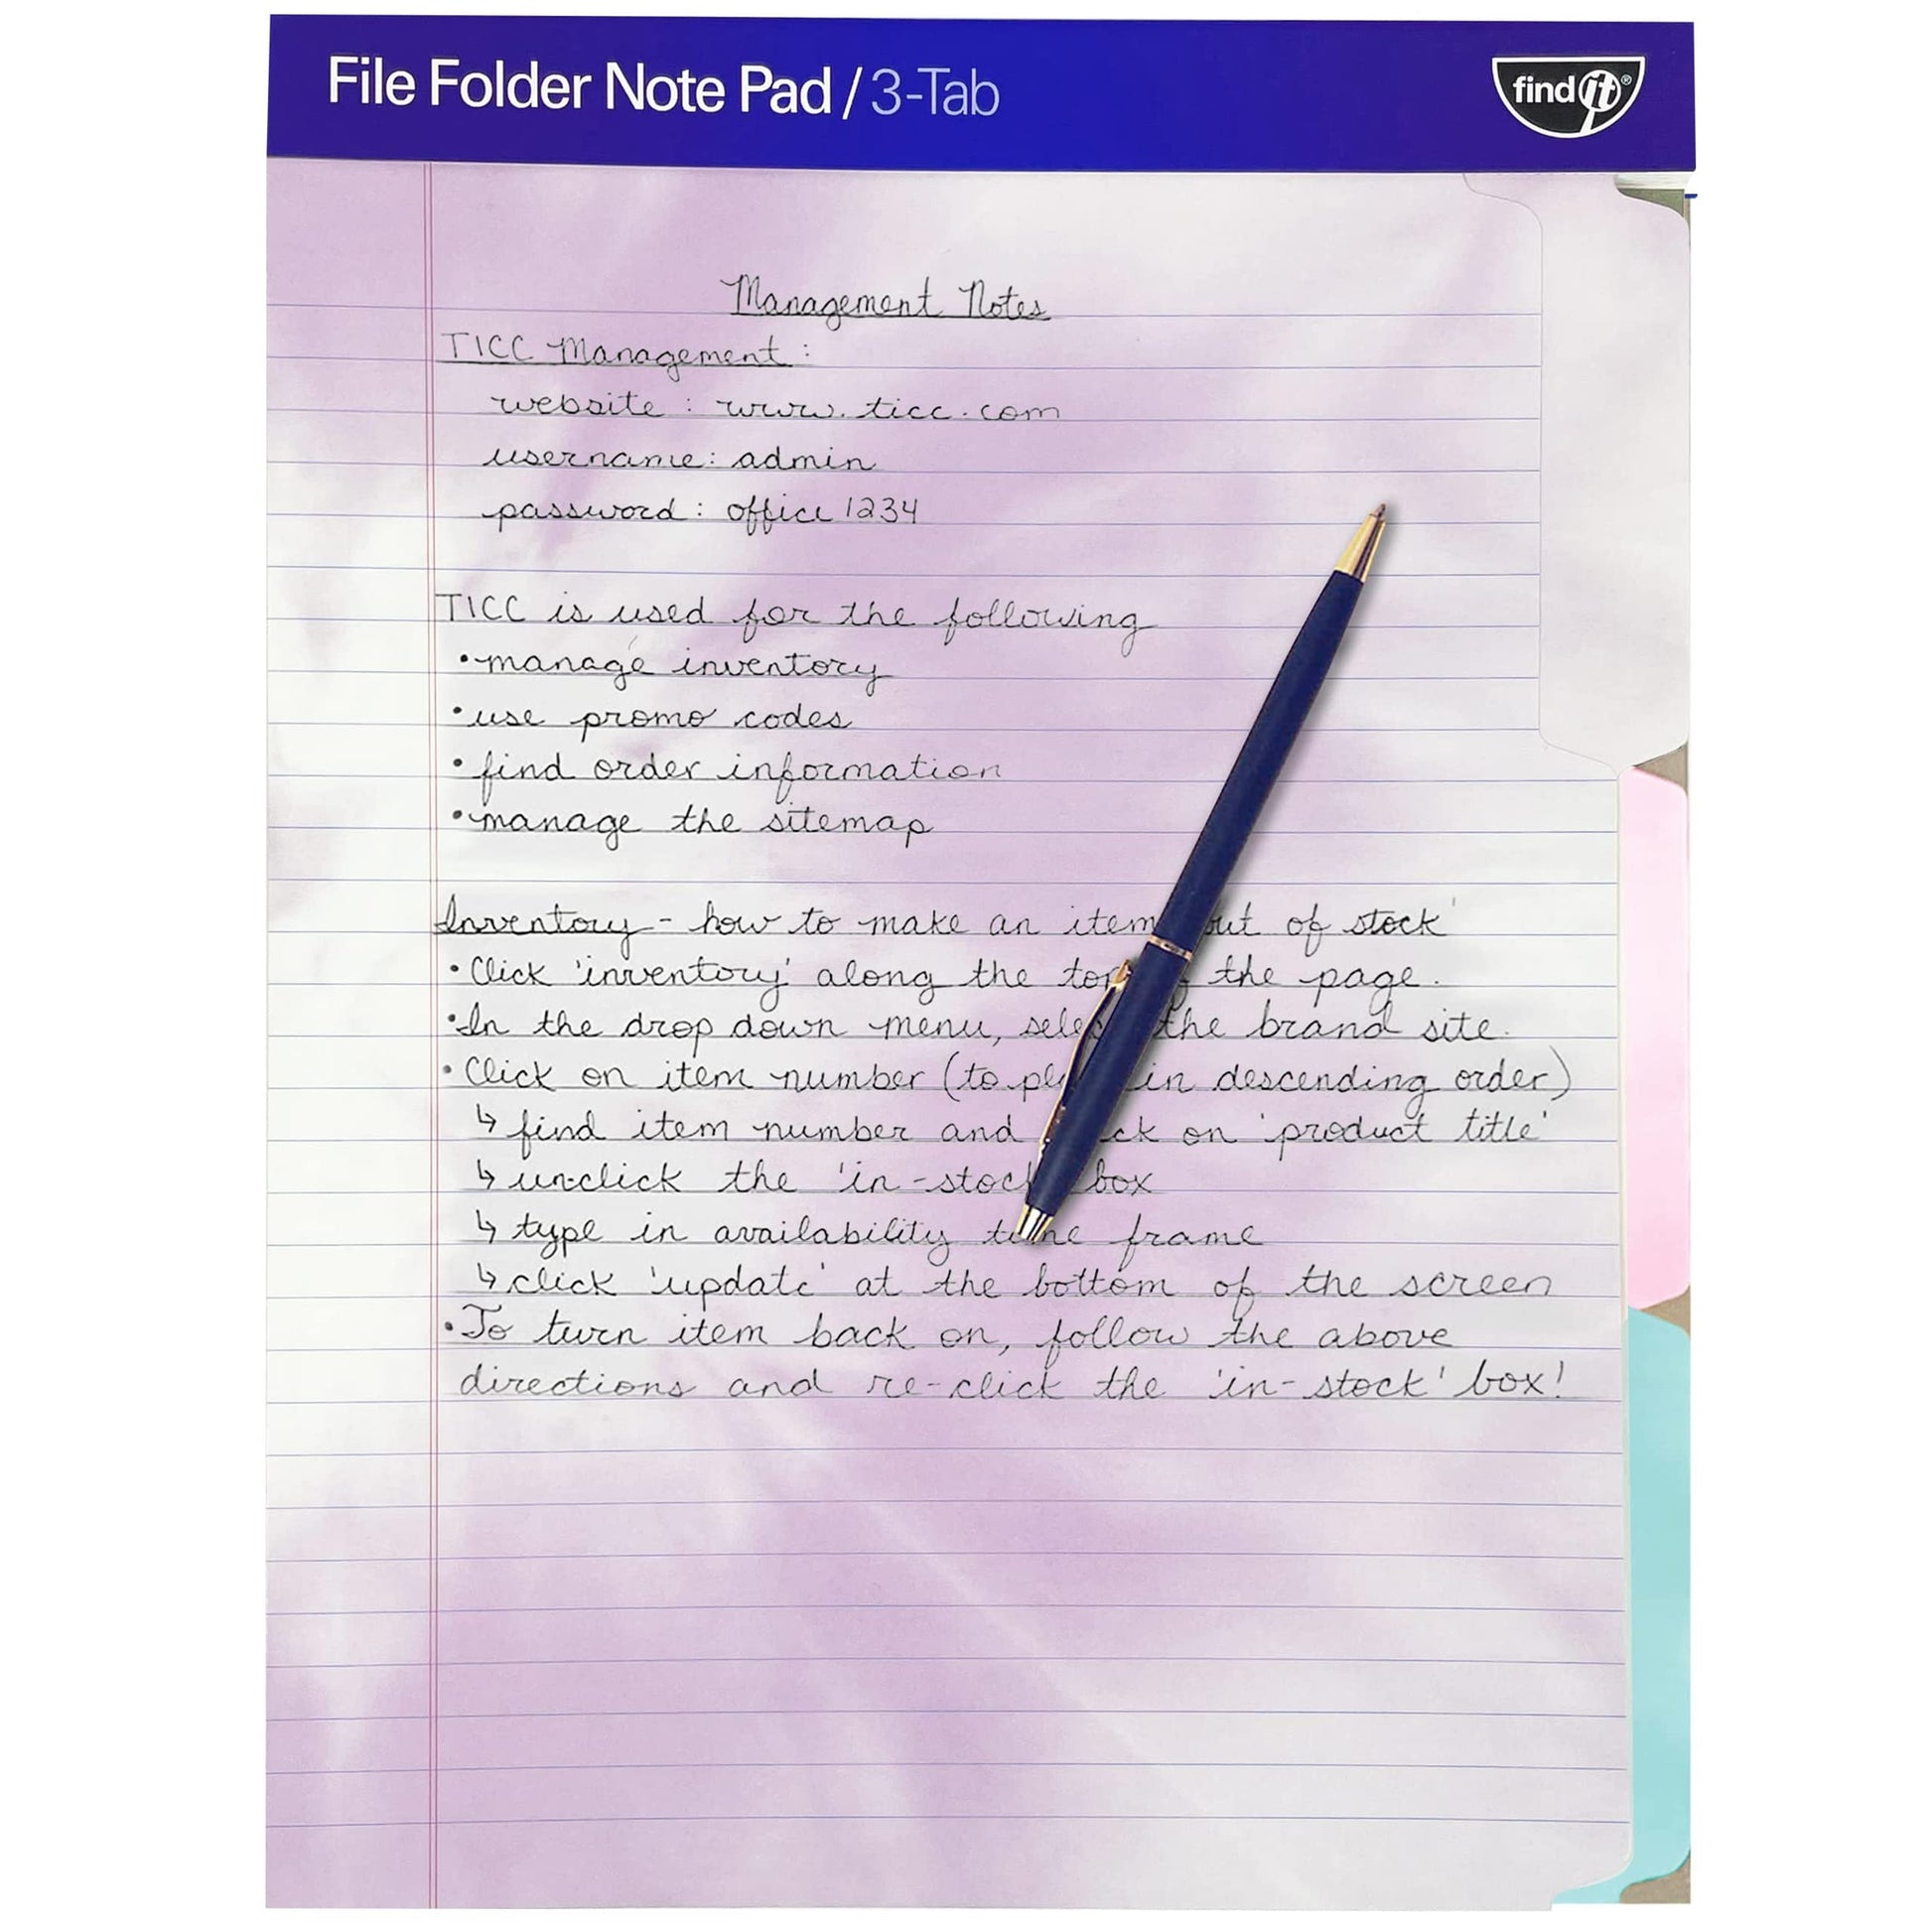 File Folder Note Pad / 3-Tab
find it®
Management Notes
TICC Management:
website: www.ticc.com
username: admin
password: office1234
TICC is used for the following
•manage inventory
•use promo codes
•find order information
•manage the sitemap
Inventory - how to make an item of stock'
•Click 'inventory' along the top the page.
•In the drop down menu, the brand site.
•Click on item number (to in descending order)
↳ find item number and on 'product title'
↳ unclick the 'in-stock box
↳ type in availability time frame
↳ click 'update' at the bottom of the screen
•To turn item back on, follow the above
directions and re-click the 'in-stock' box!